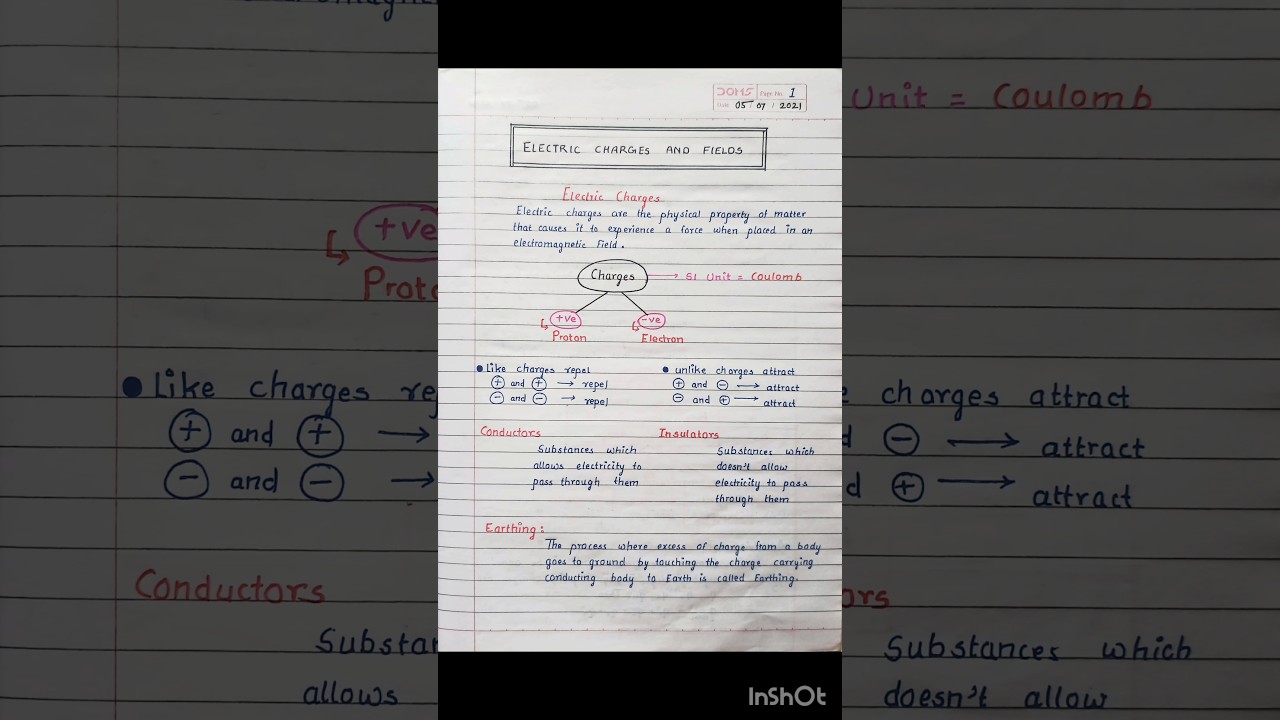 DOMS Page No. 1
Date 05 / 07 / 2021
ELECTRIC CHARGES AND FIELDS
Electric Charges
Electric charges are the physical property of matter
that causes it to experience a force when placed in an
electromagnetic field.
Charges → SI Unit = Coulomb
+ve -ve
↳ Proton ↳ Electron
• Like charges repel • unlike charges attract
⊕ and ⊕ → repel ⊕ and ⊖ → attract
⊖ and ⊖ → repel ⊖ and ⊕ → attract
Conductors Insulators
Substances which Substances which
allows electricity to doesn't allow
pass through them electricity to pass
through them
Earthing :
The process where excess of charge from a body
goes to ground by touching the charge carrying
conducting body to Earth is called Earthing.
Unit = Coulomb
+ve
↳
• Like charges attract
charges
⊕ and ⊕ → ⊖ → attract
⊖ and ⊖ → ⊕ → attract
Conductors
Substances which
allows doesn't allow
InShOt